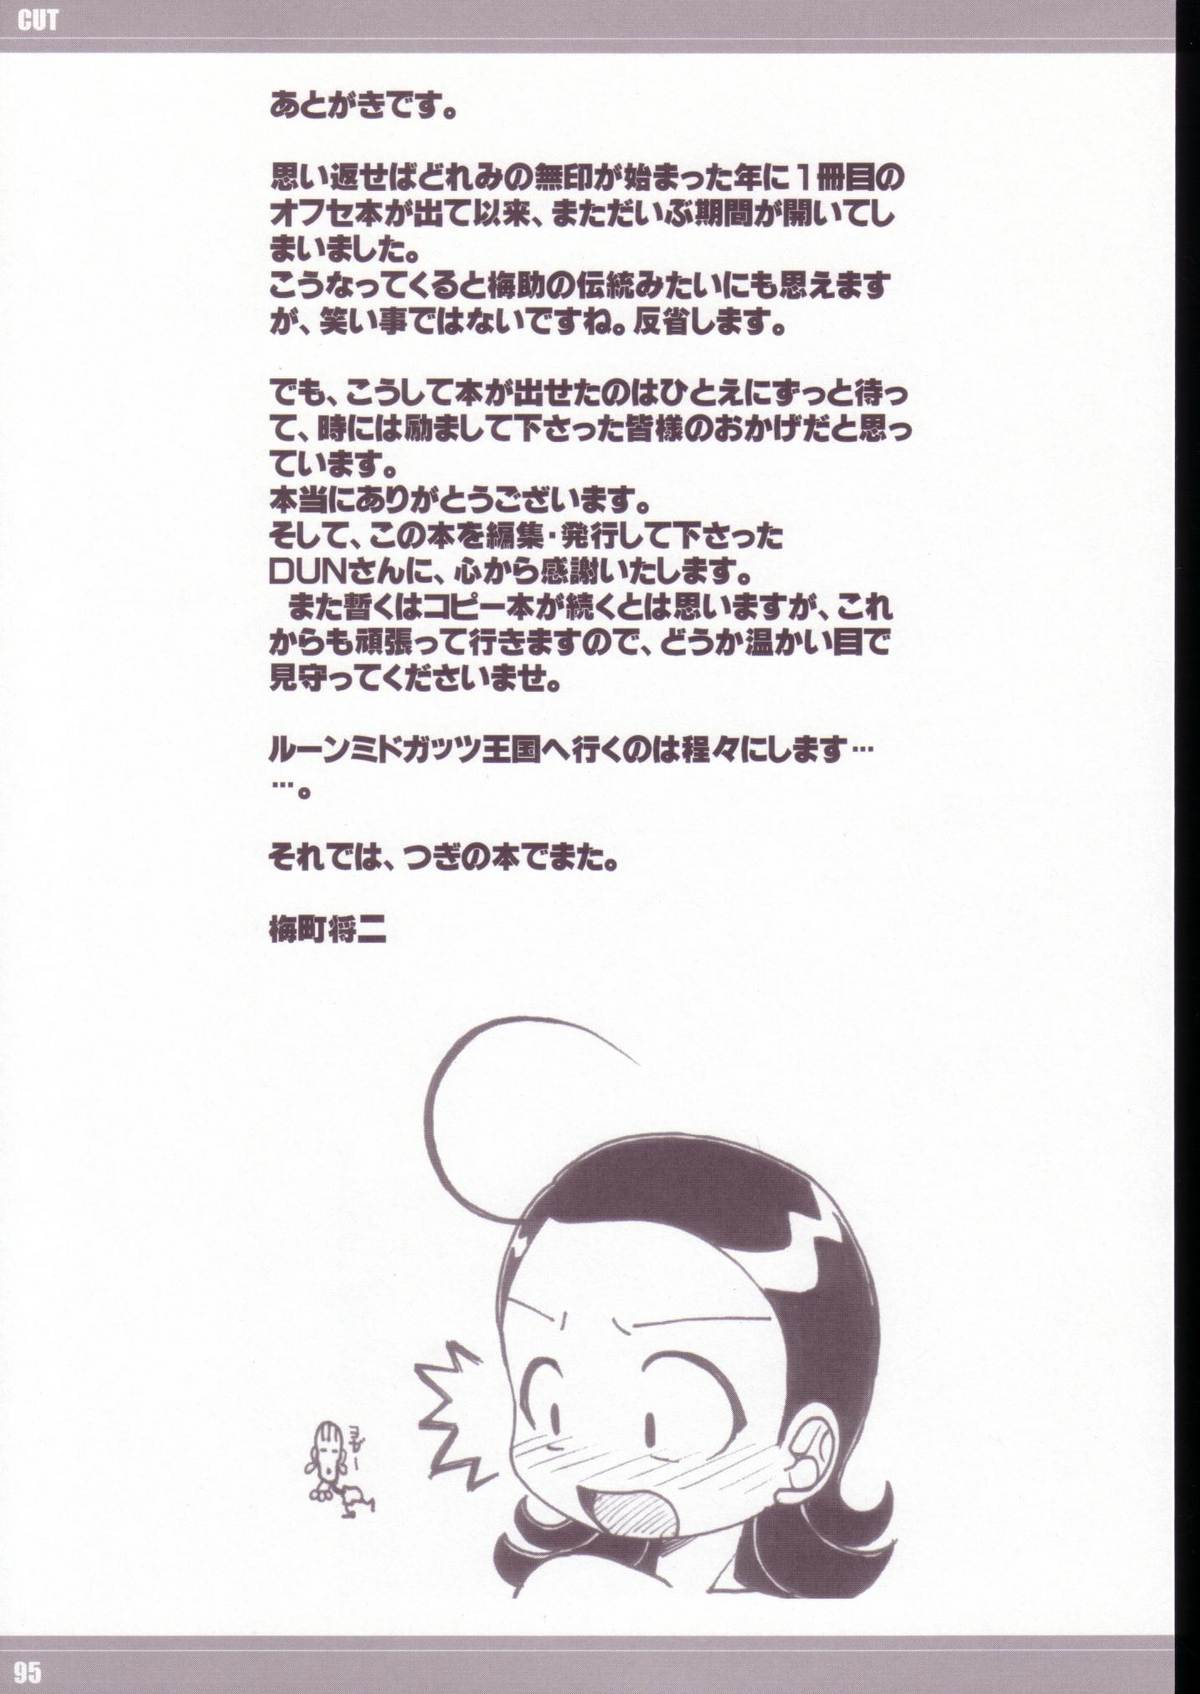 CUT
あとがきです。
思い返せばどれみの無印が始まった年に１冊目の
オフセ本が出て以来、まただいぶ期間が開いてし
まいました。
こうなってくると梅助の伝統みたいにも思えます
が、笑い事ではないですね。反省します。
でも、こうして本が出せたのはひとえにずっと待っ
て、時には励まして下さった皆様のおかげだと思っ
ています。
本当にありがとうございます。
そして、この本を編集・発行して下さった
DUNさんに、心から感謝いたします。
　また暫くはコピー本が続くとは思いますが、これ
からも頑張って行きますので、どうか温かい目で
見守ってくださいませ。
ルーンミドガッツ王国へ行くのは程々にします…
…。
それでは、つぎの本でまた。
梅町将二
95